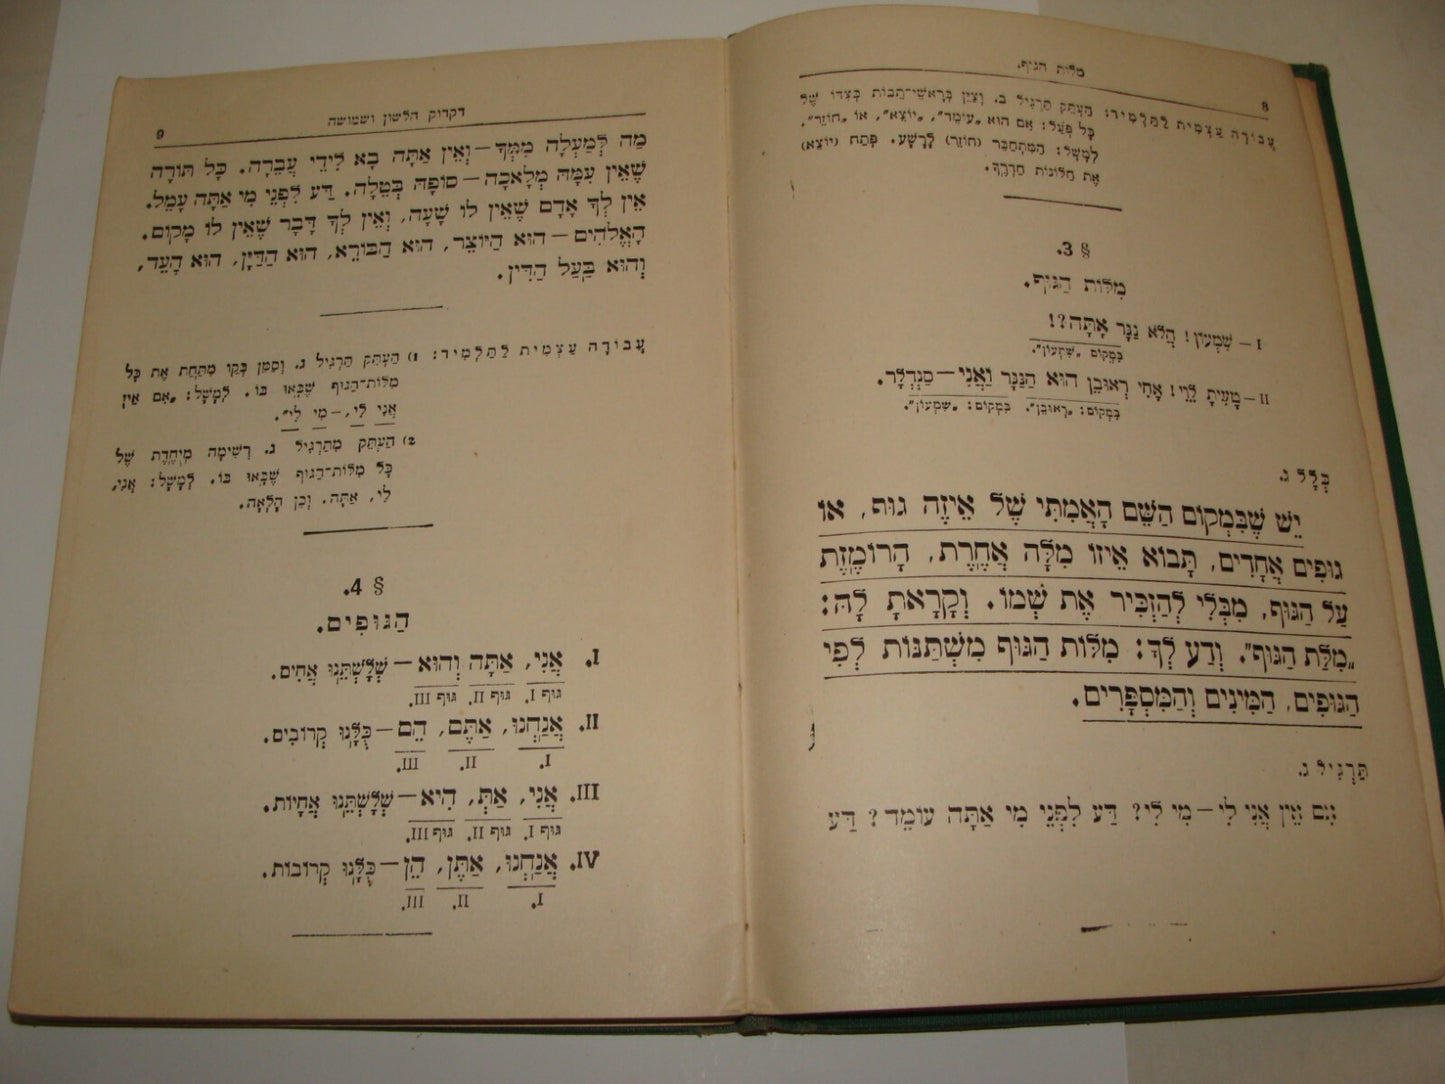 8
מלות הגוף.
עֲבוֹדָה עַצְמִית לַתַּלְמִיד: הַעְתֵּק תַּרְגִּיל ב. וְצַיֵּן בְּרָאשֵׁי־תֵבוֹת בְּצִדּוֹ שֶׁל
כָּל פֹּעַל: אִם הוּא „עוֹמֵד", „יוֹצֵא", אוֹ „חוֹזֵר".
לְמָשָׁל: הִתְחַבֵּר (חוֹזֵר) לָרָשָׁע. פָּתַח (יוֹצֵא)
אֶת חַלּוֹנוֹת חַדְרֶךָ.
§ 3.
מִלּוֹת הַגּוּף.
I – שִׁמְעוֹן! הֲלֹא נַגָּר אָתָּה?!
בִּמְקוֹם „שִׁמְעוֹן".
II – טָעִיתָ לֵוִי! אָחִי רְאוּבֵן הוּא הַנַּגָּר וַאֲנִי – סַנְדְּלָר.
בִּמְקוֹם: „רְאוּבֵן". בִּמְקוֹם: „שִׁמְעוֹן".
כְּלָל ג.
יֵשׁ שֶׁבִּמְקוֹם הַשֵּׁם הָאֲמִתִּי שֶׁל אֵיזֶה גוּף, אוֹ
גוּפִים אֲחָדִים, תָּבוֹא אֵיזוֹ מִלָּה אַחֶרֶת, הָרוֹמֶזֶת
עַל הַגּוּף, מִבְּלִי לְהַזְכִּיר אֶת שְׁמוֹ. וְקָרָאתָ לָהּ:
„מִלַּת הַגּוּף". וְדַע לְךָ: מִלּוֹת הַגּוּף מִשְׁתַּנּוֹת לְפִי
הַגּוּפִים, הַמִּינִים וְהַמִּסְפָּרִים.
תַּרְגִּיל ג.
אִם אֵין אֲנִי לִי – מִי לִי? דַּע לִפְנֵי מִי אַתָּה עוֹמֵד? דַּע
דקדוק הלשון ושמושה
9
מַה לְּמַעְלָה מִמְּךָ – וְאֵין אַתָּה בָא לִידֵי עֲבֵרָה. כָּל תּוֹרָה
שֶׁאֵין עִמָּהּ מְלָאכָה – סוֹפָהּ בְּטֵלָה. דַּע לִפְנֵי מִי אַתָּה עָמֵל.
אֵין לְךָ אָדָם שֶׁאֵין לוֹ שָׁעָה, וְאֵין לְךָ דָּבָר שֶׁאֵין לוֹ מָקוֹם.
הָאֱלֹהִים – הוּא הַיּוֹצֵר, הוּא הַבּוֹרֵא, הוּא הַדַּיָּן, הוּא הָעֵד,
וְהוּא בַּעַל הַדִּין.
עֲבוֹדָה עַצְמִית לַתַּלְמִיד: 1) הַעְתֵּק תַּרְגִּיל ג. וְסַמֵּן בְּקַו מִתַּחַת אֶת כָּל
מִלּוֹת־הַגּוּף שֶׁבָּאוּ בוֹ. לְמָשָׁל: „אִם אֵין
אֲנִי לִי, – מִי לִי".
2) הַעְתֵּק מִתַּרְגִּיל ג. רְשִׁימָה מְיֻחֶדֶת שֶׁל
כָּל מִלּוֹת־הַגּוּף שֶׁבָּאוּ בוֹ. לְמָשָׁל: אֲנִי,
לִי, אַתָּה. וְכֵן הָלְאָה.
§ 4.
הַגּוּפִים.
I. אֲנִי, אַתָּה וְהוּא – שְׁלָשְׁתֵּנוּ אַחִים.
גּוּף I. גּוּף II. גּוּף III.
II. אֲנַחְנוּ, אַתֶּם, הֵם – כֻּלָּנוּ קְרוֹבִים.
I. II. III.
III. אֲנִי, אַתְּ, הִיא – שְׁלָשְׁתֵּנוּ אֲחָיוֹת.
גּוּף I. גּוּף II. גּוּף III.
IV. אֲנַחְנוּ, אַתֶּן, הֵן – כֻּלָּנוּ קְרוֹבוֹת.
I. II. III.